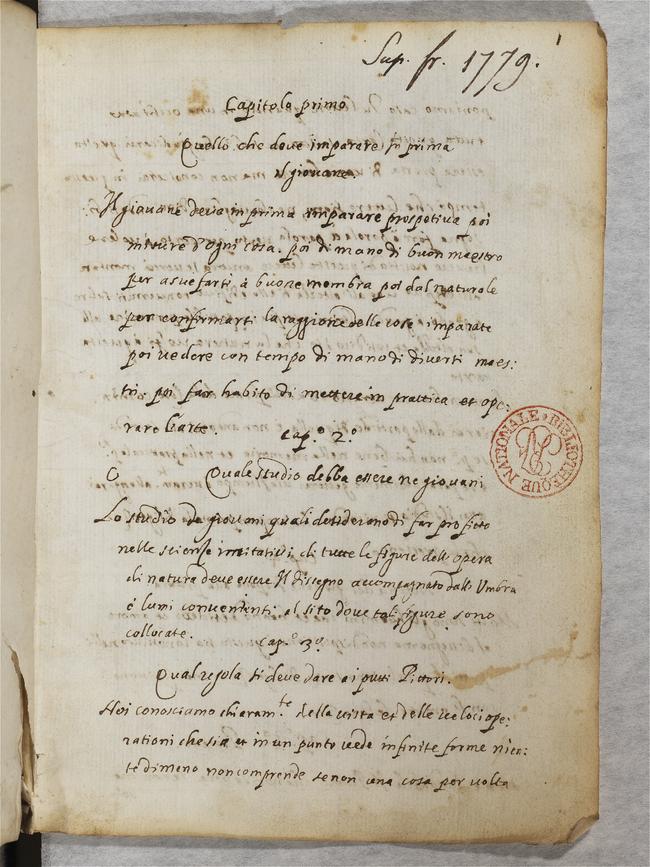 Sup. fr. 1779.
1
Capitolo primo
Quello che deve imparare in prima
il giovane.
Il giovane deve in prima imparare prospetiva poi
misure d'ogni cosa. poi di mano di buon maestro
per asuefarti à buone membra poi dal naturale
per confirmarti la raggione delle cose imparate
poi vedere con tempo di mano di diversi maes:
tri poi far habito di mettere in prattica et ope:
rare l'arte.
Cap.º 2.º
Quale studio debba essere ne giovani
Lo studio de giovani quali desiderano di far profitto
nelle scienze imitativi, di tutte le figure dell' opera
di natura deve essere Il disegno accompagnato dall' Umbra
è lumi convenienti al sito dove tal figure sono
collocate.
Cap.º 3.º
Qual regola si deve dare a i putti Pittori.
Noi conosciamo chiaram.te della vista et delle veloci ope:
rationi che sia et in un punto vede infinite forme nien:
te di meno non comprende se non una cosa per volta
BIBLIOTHEQUE NATIONALE